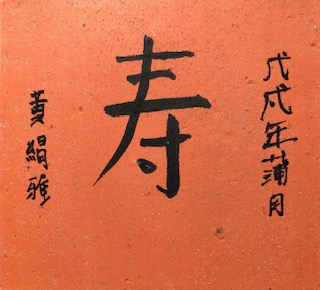 戊戌年蒲月
寿
黄絹雅